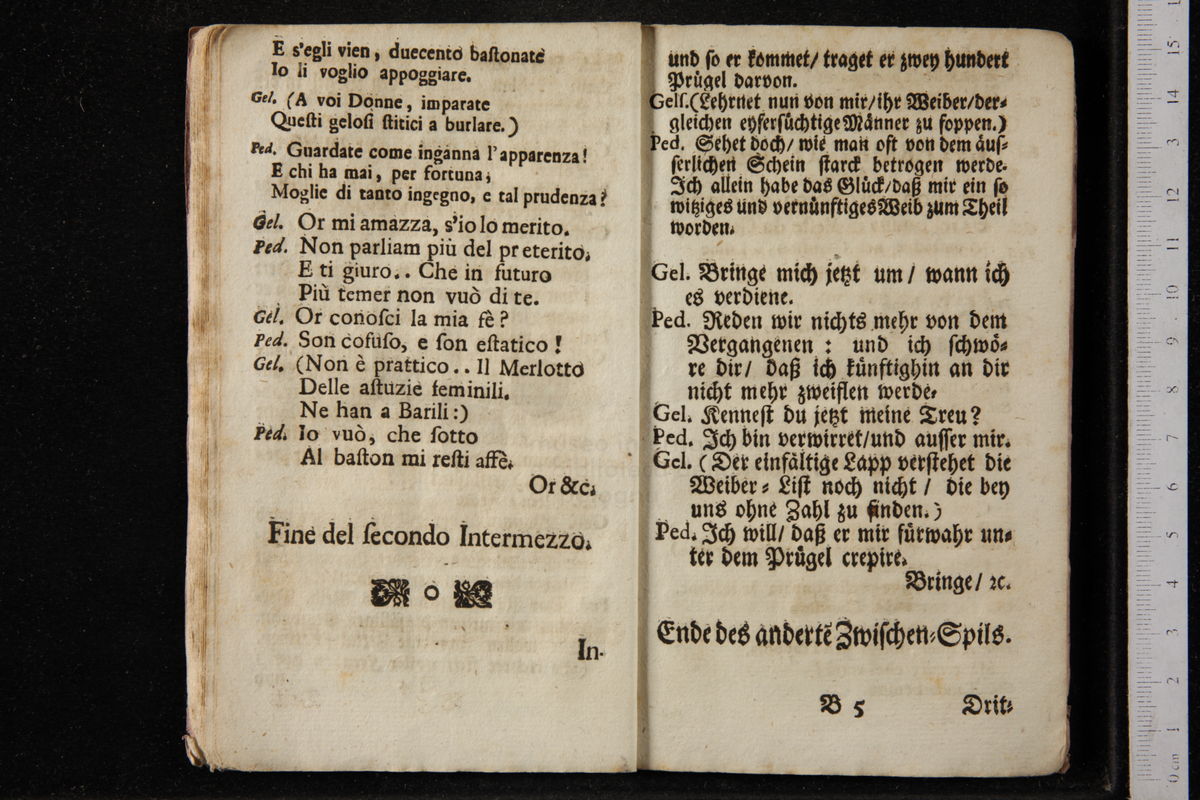 E s'egli vien, duecento baſtonate
Io li voglio appoggiare.
Gel. (A voi Donne, imparate
Queſti geloſi ſtitici a burlare.)
Ped. Guardate come inganna l'apparenza!
E chi ha mai, per fortuna,
Moglie di tanto ingegno, e tal prudenza?
Gel. Or mi amazza, s'io lo merito.
Ped. Non parliam più del preterito,
E ti giuro.. Che in futuro
Più temer non vuò di te.
Gel. Or conoſci la mia fè?
Ped. Son cõfuſo, e ſon eſtatico!
Gel. (Non è prattico.. Il Merlotto
Delle aſtuzie feminili.
Ne han a Barili:)
Ped. Io vuò, che ſotto
Al baſton mi reſti affè.
Or &c.
Fine del ſecondo Intermezzo.
In-
und ſo er kommet/ traget er zwey hundert
Prügel darvon.
Gelſ. (Lehrnet nun von mir/ihr Weiber/der-
gleichen eyferſüchtige Männer zu foppen.)
Ped. Sehet doch/ wie man oft von dem äuſ-
ſerlichen Schein ſtarck betrogen werde.
Ich allein habe das Glück/daß mir ein ſo
witziges und vernünftiges Weib zum Theil
worden.
Gel. Bringe mich jetzt um/ wann ich
es verdiene.
Ped. Reden wir nichts mehr von dem
Vergangenen: und ich ſchwö-
re dir/ daß ich künftighin an dir
nicht mehr zweiflen werde.
Gel. Kenneſt du jetzt meine Treu?
Ped. Ich bin verwirret/und auſſer mir.
Gel. (Der einfältige Lapp verſtehet die
Weiber-Liſt noch nicht/ die bey
uns ohne Zahl zu finden.)
Ped. Ich will/ daß er mir fürwahr un-
ter dem Prügel crepire.
Bringe/ ꝛc.
Ende des andertẽ Zwiſchen-Spils.
B 5 Drit-
15
14
13
12
11
10
9
8
7
6
5
4
3
2
1
0 cm